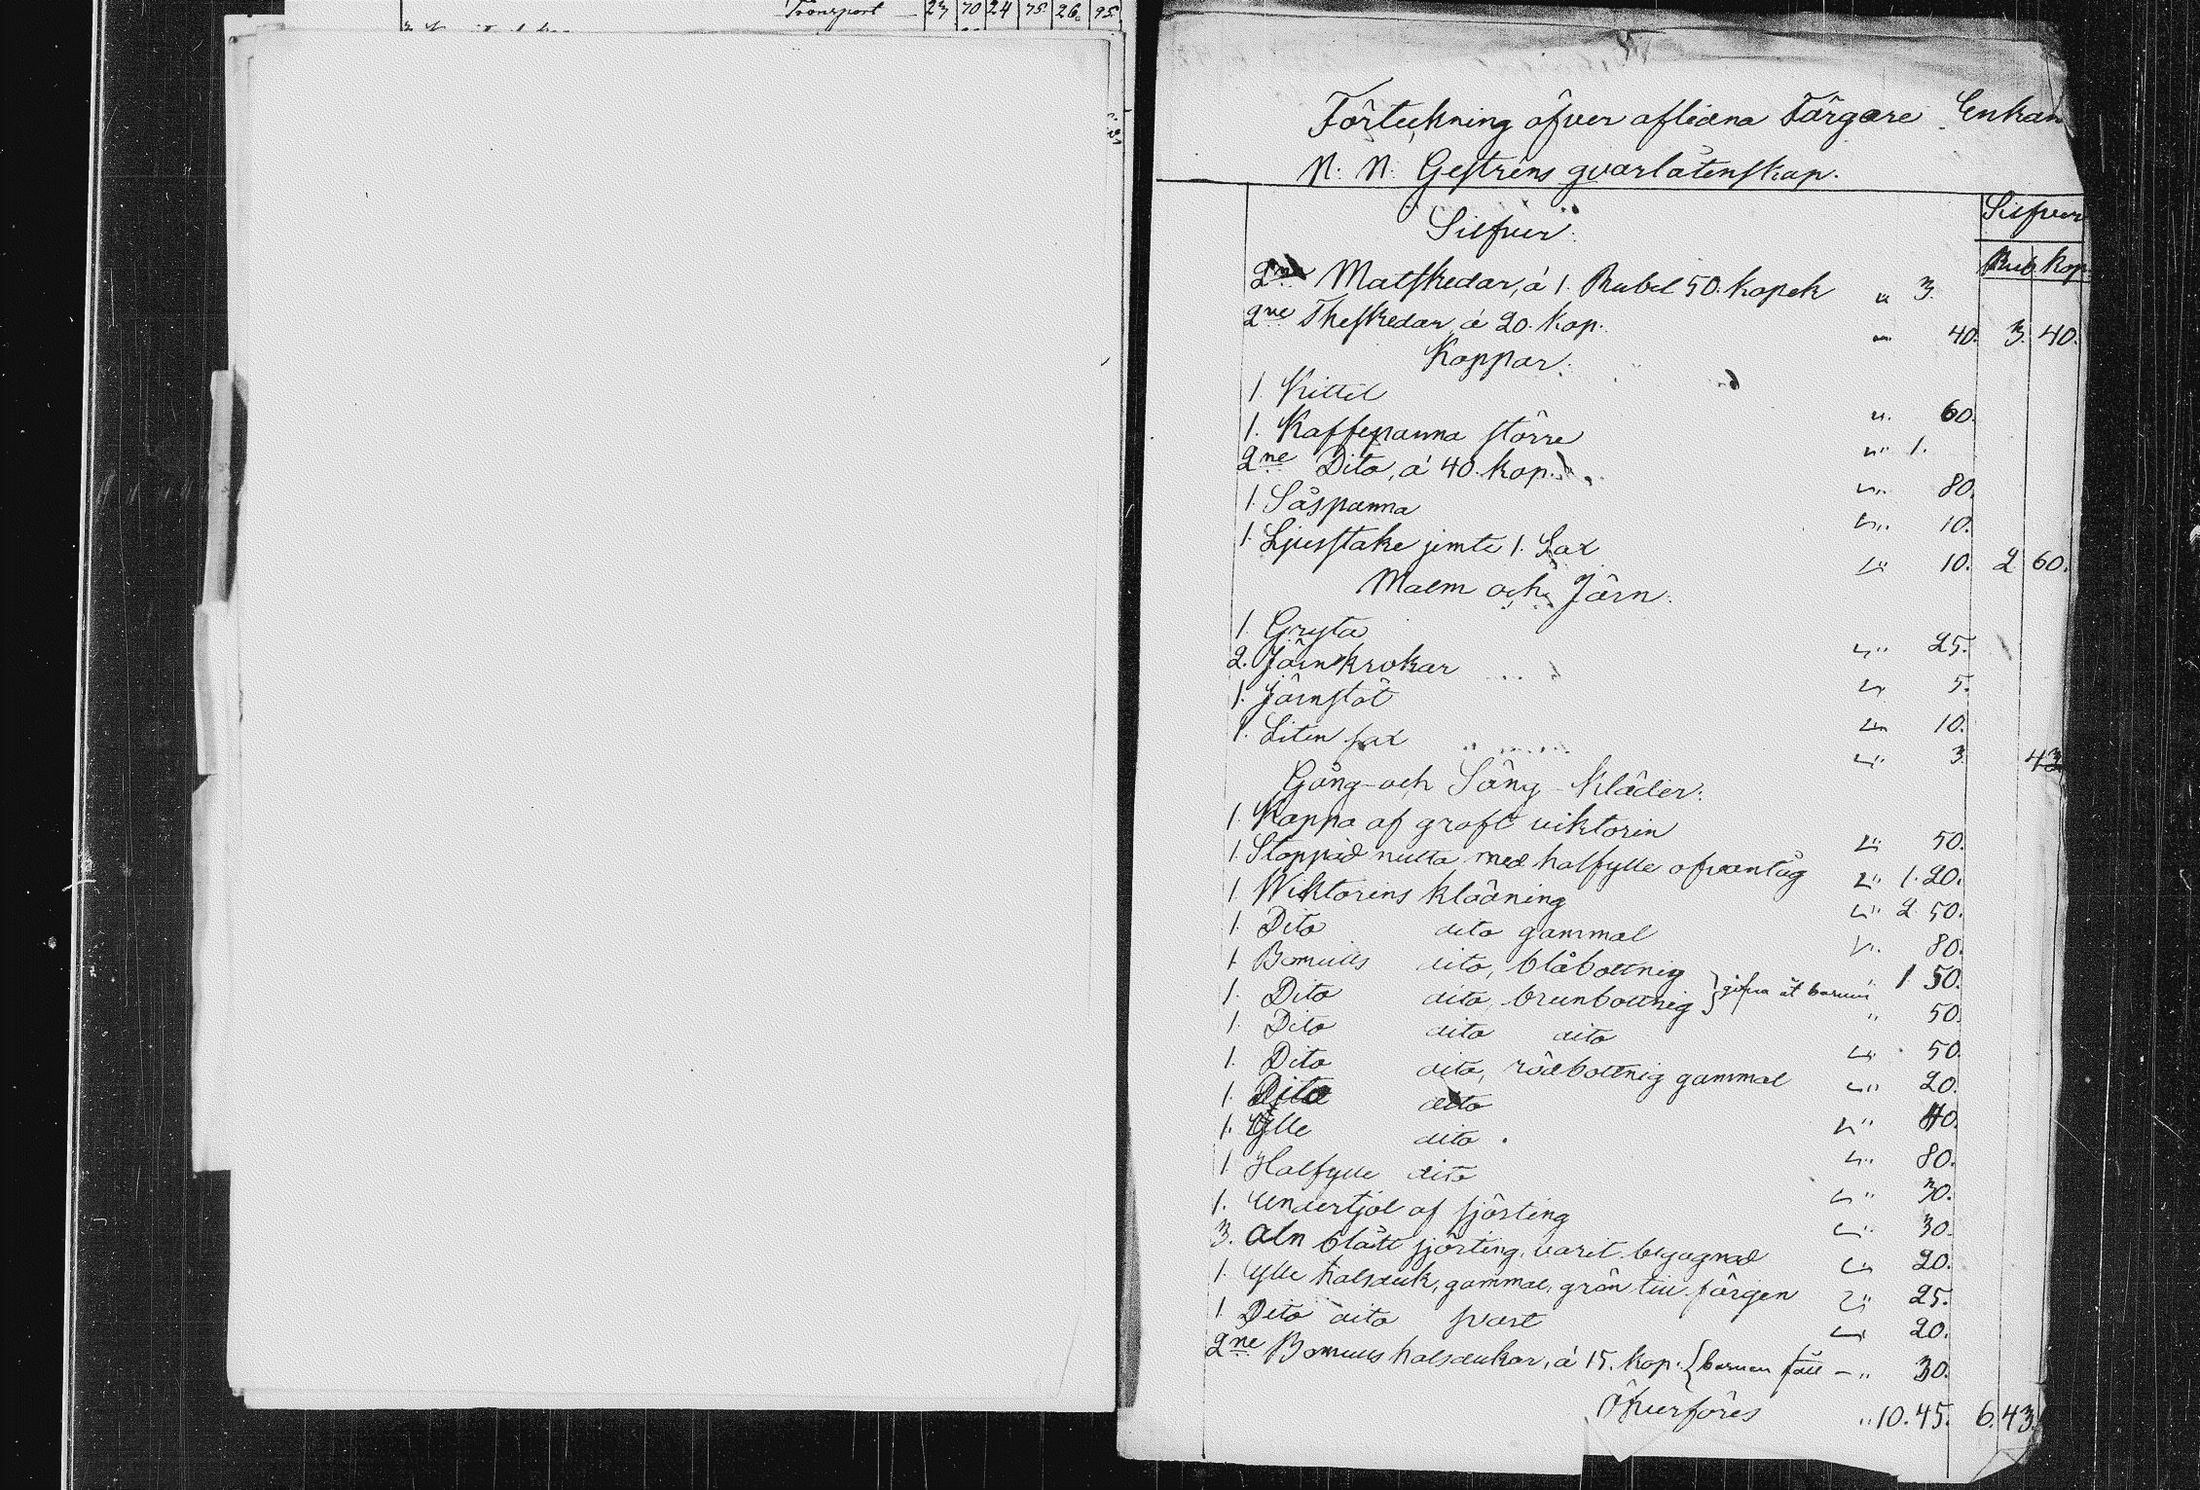 Transport — 27 70 24 75 26 95
Förteckning öfver aflidna Färgare Enkan
N. N. Gestrins qvarlåtenskap.
Silfver
Silfver: Rub. Kop.
2ne Matskedar, á 1. Rubel 50. kopek " 3.
2ne Theskedar á 20. kop. " 40. 3. 40.
Koppar:
1. Kittel " 60.
1. Kaffepanna större " 1.
2ne Dito, á 40. kop. " 80.
1. Såspanna " 10.
1. Ljusstake jemte 1. Sax " 10. 2 60.
Malm och Järn:
1. Gryta " 25.
2. Järnkrokar " 5.
1. Järnstöt " 10.
1. Liten sax " 3. 43
Gång- och Säng-Kläder:
1. Kappa af groft viktorin " 50.
1. Stoppad mutta med halfylle ofvantåg " 1. 20.
1 Wiktorins klädning " 2 50.
1. Dito dito gammal " 80.
1 Bomulls dito, blåbottnig 1 50.
1. Dito dito, brunbottnig } gifva åt barnen " 50.
1. Dito dito dito " 50.
1. Dito dito, rödbottnig gammal " 20.
1. Dito dito " 40.
1. Ylle dito " 80.
1 Halfylle dito " 30.
1. Undertjol af sjörting " 30.
3. Aln blått sjörting, varit begagnad " 20.
1. Ylle halsduk, gammal, grön till färgen " 25.
1 Dito dito svart " 20.
2ne Bomulls halsdukar, á 15. kop. { barnen fått — " 30.
Öfverföres " 10. 45. 6. 43